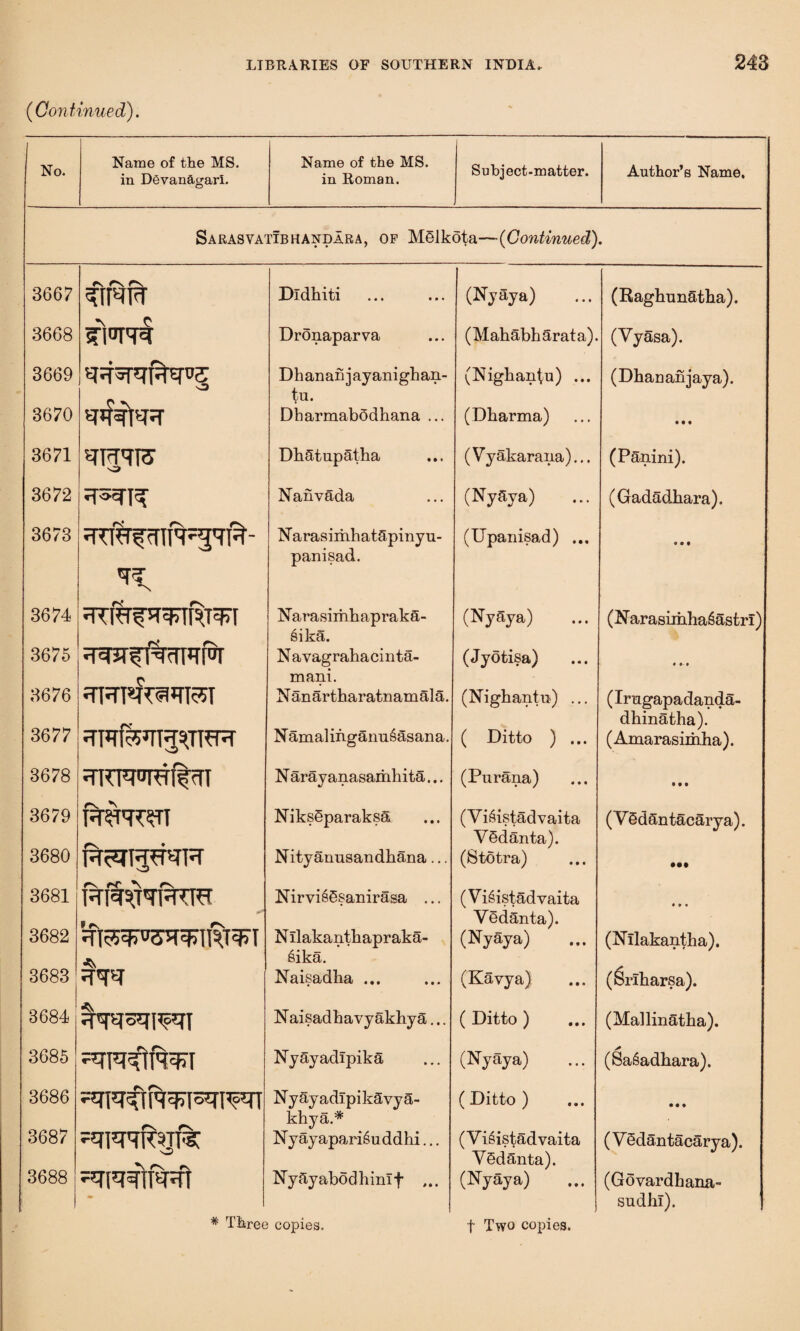 LIBRARIES OF SOUTHERN INDIA. 243
(Continued).
No. Name of the MS. in Dēvanâgarî. Name of the MS. in Roman. Subject-matter. Author's Name.
SARASVATĪBHANḌĀRA, OF Mēlkōṭa—(Continued).
3667 दीधिति Dīdhiti ... ... (Nyāya) ... (Raghunātha).
3668 द्रोणपर्व Drōnaparva ... (Mahābhārata). (Vyāsa).
3669 धनञ्जयनिघण्टु Dhananñjayanighan- (Nighanṭu) ... (Dhananñjaya).
tu.
3670 धर्मबोधन Dharmabōdhana ... (Dharma) ... ...
3671 धातुपाठ Dhātupāṭha ... (Vyākarana)... (Pānini).
3672 नञ्वाद Nañvāda ... (Nyāya) ... (Gadādhara).
3673 नरसिंहतापिन्युपनि- Narasiṁhatāpinyu- (Upanisad) ... ...
षद् panisad.
3674 नरसिंहप्रकाशिका Narasiṁhaprakā- (Nyāya) ... (Narasiṁhaśāstrī)
śikā.
3675 नवग्रहचिन्तामणि Navagrahacintā- (Jyōtiṣa) ... ...
mani.
3676 नानार्थरत्नमाला Nānārtharatnamāla. (Nighanṭu) ... (Irugapadanḍā-
dhinātha).
3677 नामलिङ्गानुशासन Nāmaliṅgānuśāsana. ( Ditto ) ... (Amarasiṁha).
3678 नारायणसंहिता Nārāyanasaṁhitā... (Purāna) ... ...
3679 निक्षेपरक्षा Niksēparaksā ... (Viśistādvaita (Vēdāntācārya).
Vēdānta).
3680 नित्यानुसन्धान Nityānusandhāna... (Stōtra) ... ...
3681 निर्विशेषनिरास Nirviśēṣanirāsa ... (Viśistādvaita ...
Vēdānta).
3682 नीलकण्ठप्रकाशिका Nīlakanṭhaprakā- (Nyāya) ... (Nīlakanṭha).
śikā.
3683 नैषध Naisadha ... ... (Kāvya) ... (Śrīharṣa).
3684 नैषधव्याख्या Naisadhavyākhyā... ( Ditto ) ... (Mallinātha).
3685 न्यायदीपिका Nyāyadīpikā ... (Nyāya) ... (Śaśadhara).
3686 न्यायदीपिकाव्याख्या Nyāyadīpikāvyā- ( Ditto ) ... ...
khyā.*
3687 न्यायपरिशुद्धि Nyāyapariśuddhi... (Viśistādvaita (Vēdāntācārya).
Vēdānta).
3688 न्यायबोधिनी Nyāyabōdhinī† ... (Nyāya) ... (Gōvardhana-
sudhī).
* Three copies. † Two copies.